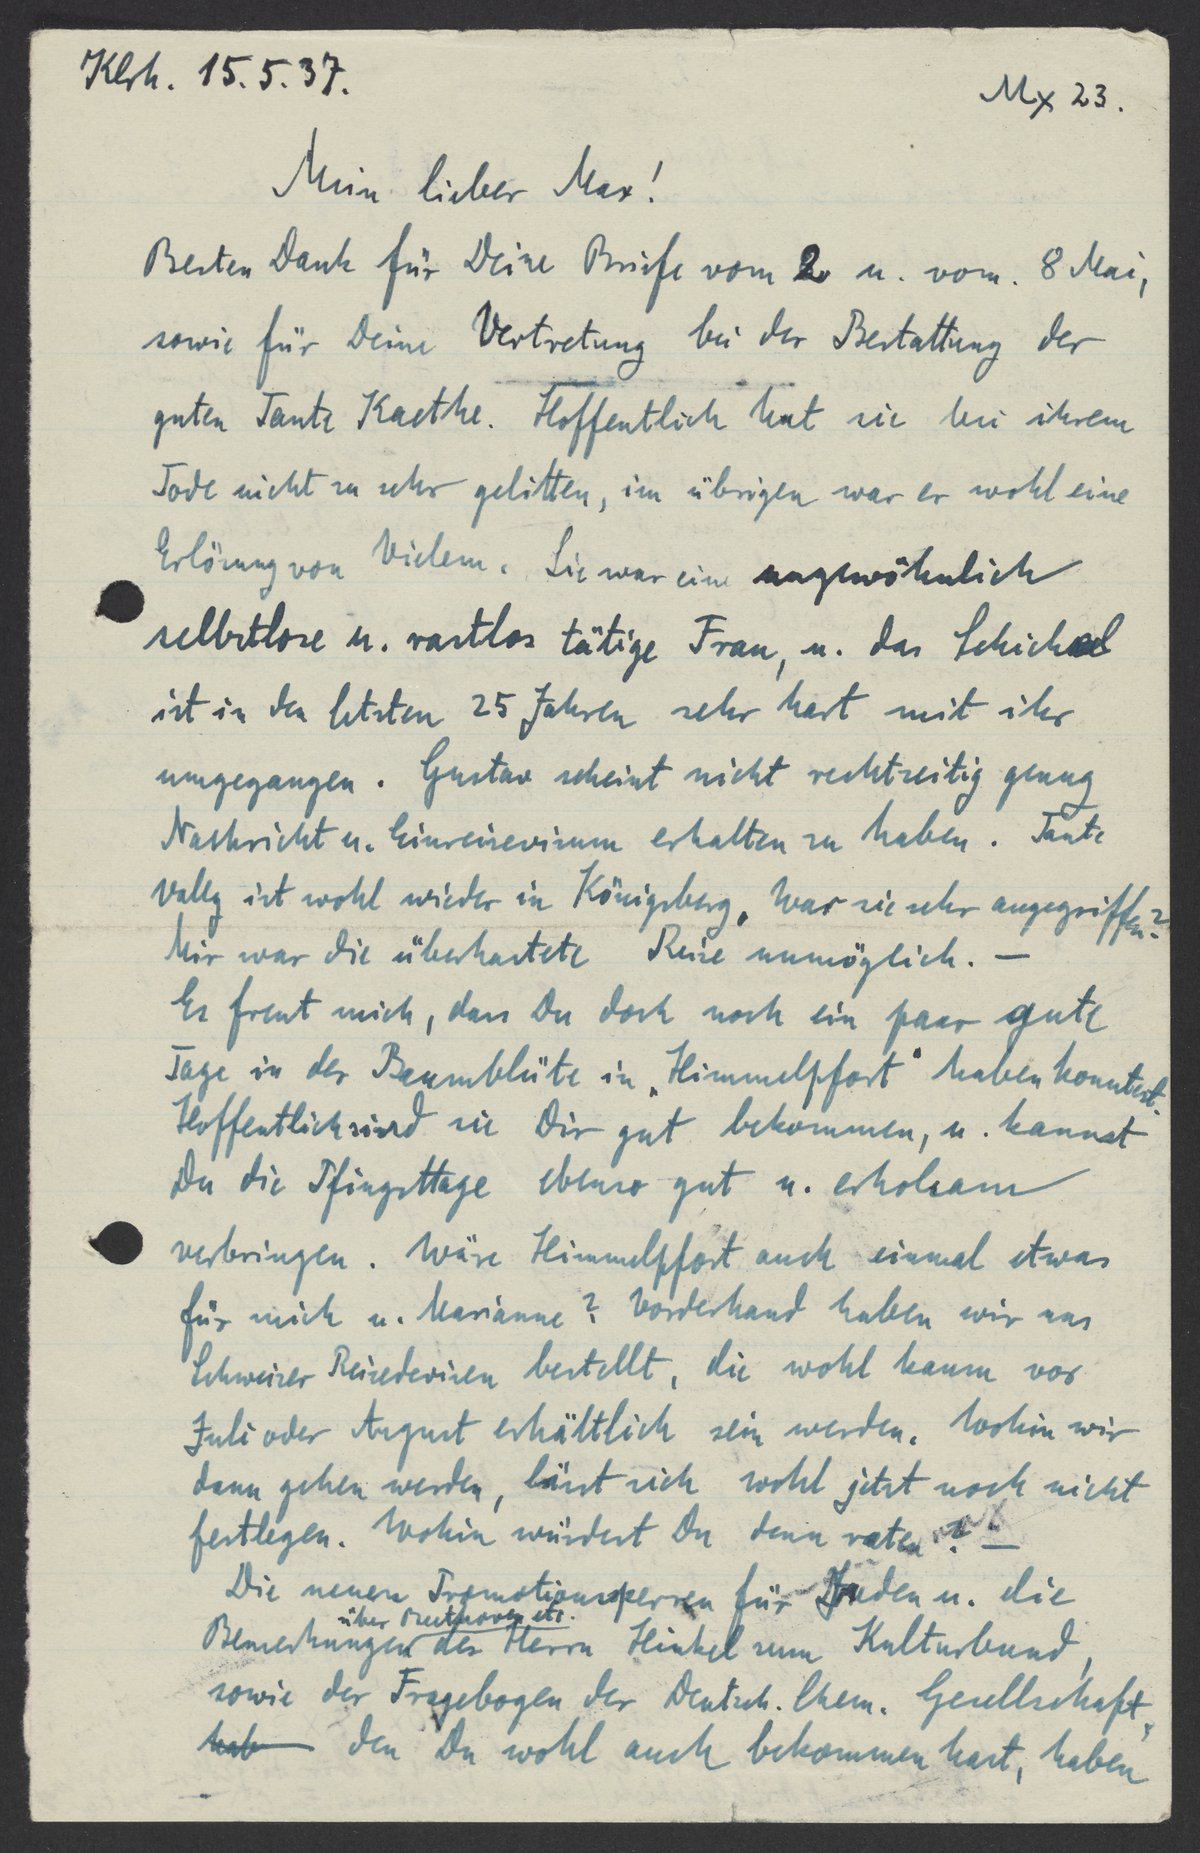 Klrh. 15.5.37.
Mx 23.
Mein lieber Max!
Besten Dank für Deine Briefe vom 2. u. vom. 8 Mai,
sowie für Deine Vertretung bei der Bestattung der
guten Tante Kaethe. Hoffentlich hat sie bei ihrem
Tode nicht zu sehr gelitten, im übrigen war er wohl eine
Erlösung von Vielem. Sie war eine ungewöhnlich
selbstlose u. rastlos tätige Frau, u. das Schicksal
ist in den letzten 25 Jahren sehr hart mit ihr
umgegangen. Gustav scheint nicht rechtzeitig genug
Nachricht u. Einreisevisum erhalten zu haben. Tante
Vally ist wohl wieder in Königsberg. War sie sehr angegriffen?
Mir war die überhastete Reise unmöglich. —
Es freut mich, dass Du doch noch ein paar gute
Tage in der Baumblüte in „Himmelpfort" haben konntest.
Hoffentlich sind sie Dir gut bekommen, u. kannst
Du die Pfingsttage ebenso gut u. erholsam
verbringen. Wäre Himmelpfort auch einmal etwas
für mich u. Marianne? Vorderhand haben wir uns
Schweizer Reisedevisen bestellt, die wohl kaum vor
Juli oder August erhältlich sein werden. Wohin wir
dann gehen werden, lässt sich wohl jetzt noch nicht
festlegen. Wohin würdest Du denn raten? —
Die neuen Promotionssperren für Juden u. die
über Beethoven etc.
Bemerkungen des Herrn Hinkel zum Kulturbund,
sowie der Fragebogen der Deutsch. Chem. Gesellschaft,
hab den Du wohl auch bekommen hast, haben